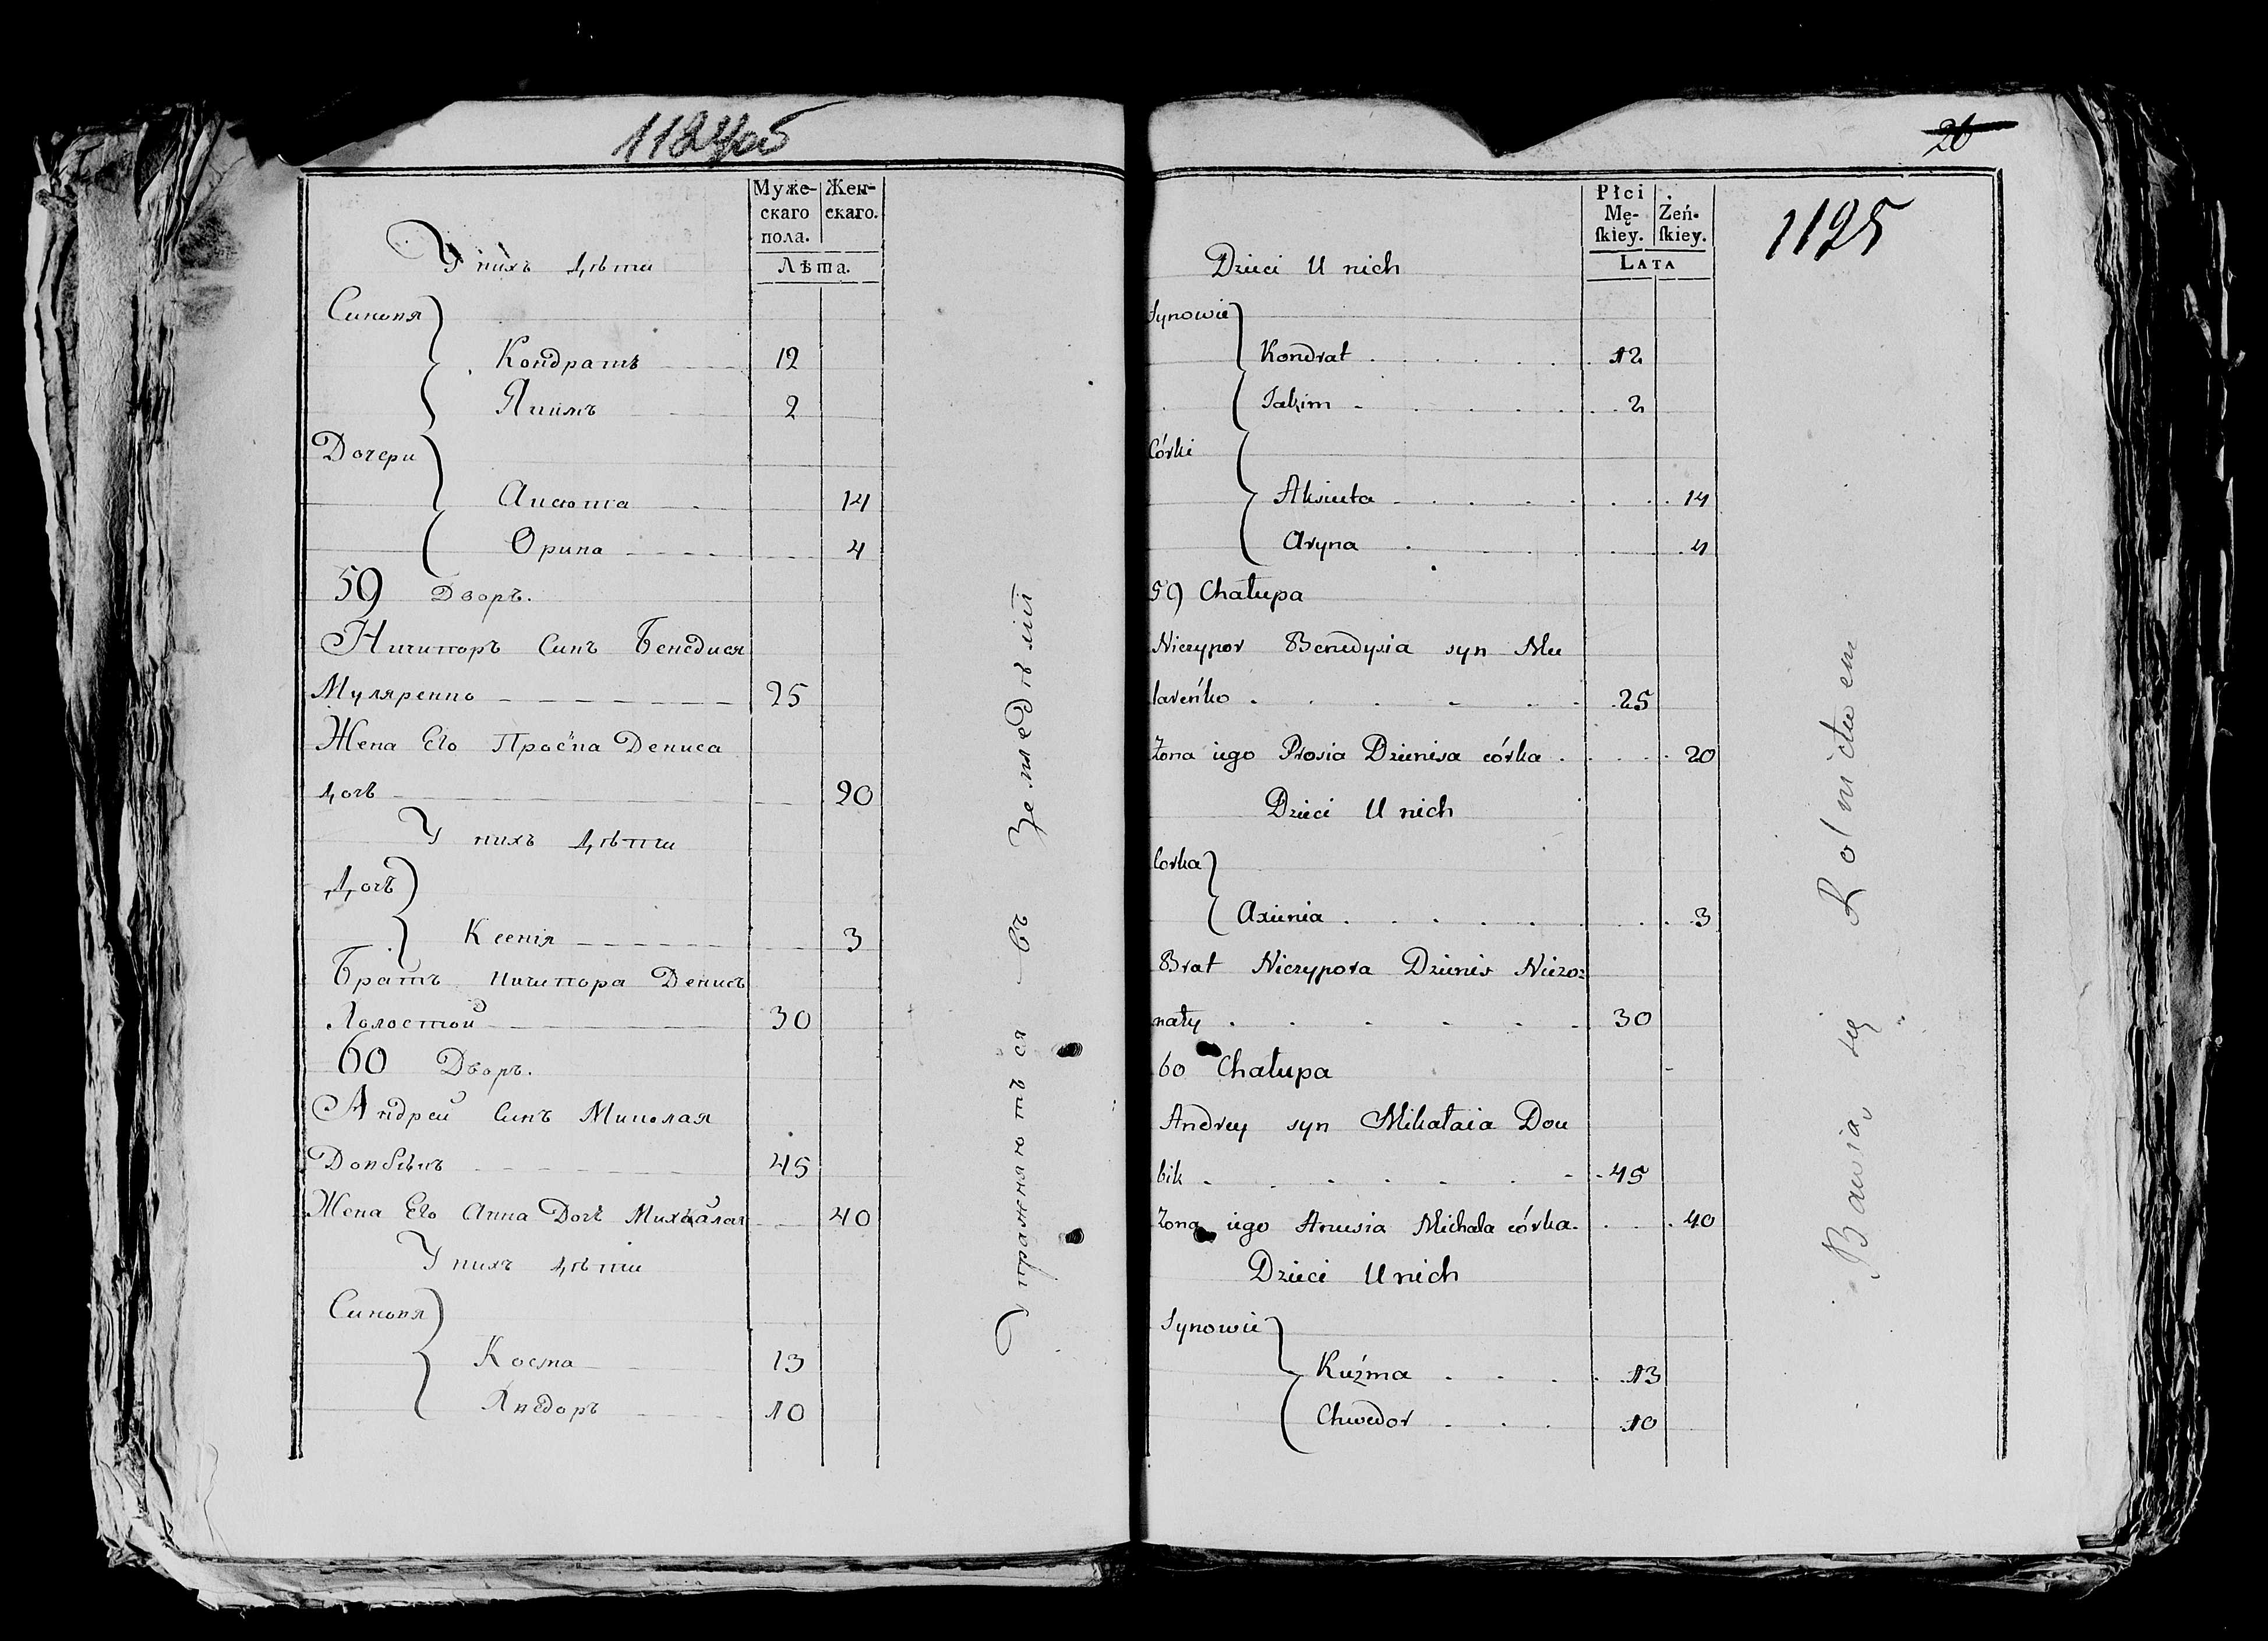 1124об
Муже-
скаго
пола.
Жен-
скаго.
Лѣта.
У нихъ дѣти
Синовя
Кондратъ 12
Якимъ 2
Дочери
Аксюта 14
Орина 4
59 Дворъ.
Ничипоръ Синъ Бенедися
Муляренко 25
Жена Его Проська Дениса
дочь 20
У нихъ дѣти
Дочь
Ксенія 3
Братъ Ничипора Денисъ
Холостой 30
60 Дворъ.
Андрей Синъ Миколая
Довбикъ 45
Жена Его Анна Дочь Михайла 40
У нихъ дѣти
Синовя
Косма 13
Хведоръ 10
Упражняются въ Земледѣліи
26
1125
Płci
Mę-
ſkiey.
Żeń-
ſkiey.
LATA
Dzieci U nich
Synowie
Kondrat 12
Jakim 2
Córki
Aksiuta 14
Aryna 4
59 Chałupa
Niczypor Benedysia syn Mu
lareńko 25
Żona iego Prosia Dzienisa córka 20
Dzieci U nich
Corka
Axienia 3
Brat Niczypora Dzienis Nieżo=
naty 30
60 Chałupa
Andrey syn Mikałaia Dou
bik 45
Żona iego Anusia Michała córka 40
Dzieci U nich
Synowie
Kuźma 13
Chwedor 10
Bawią się Rolnictwem